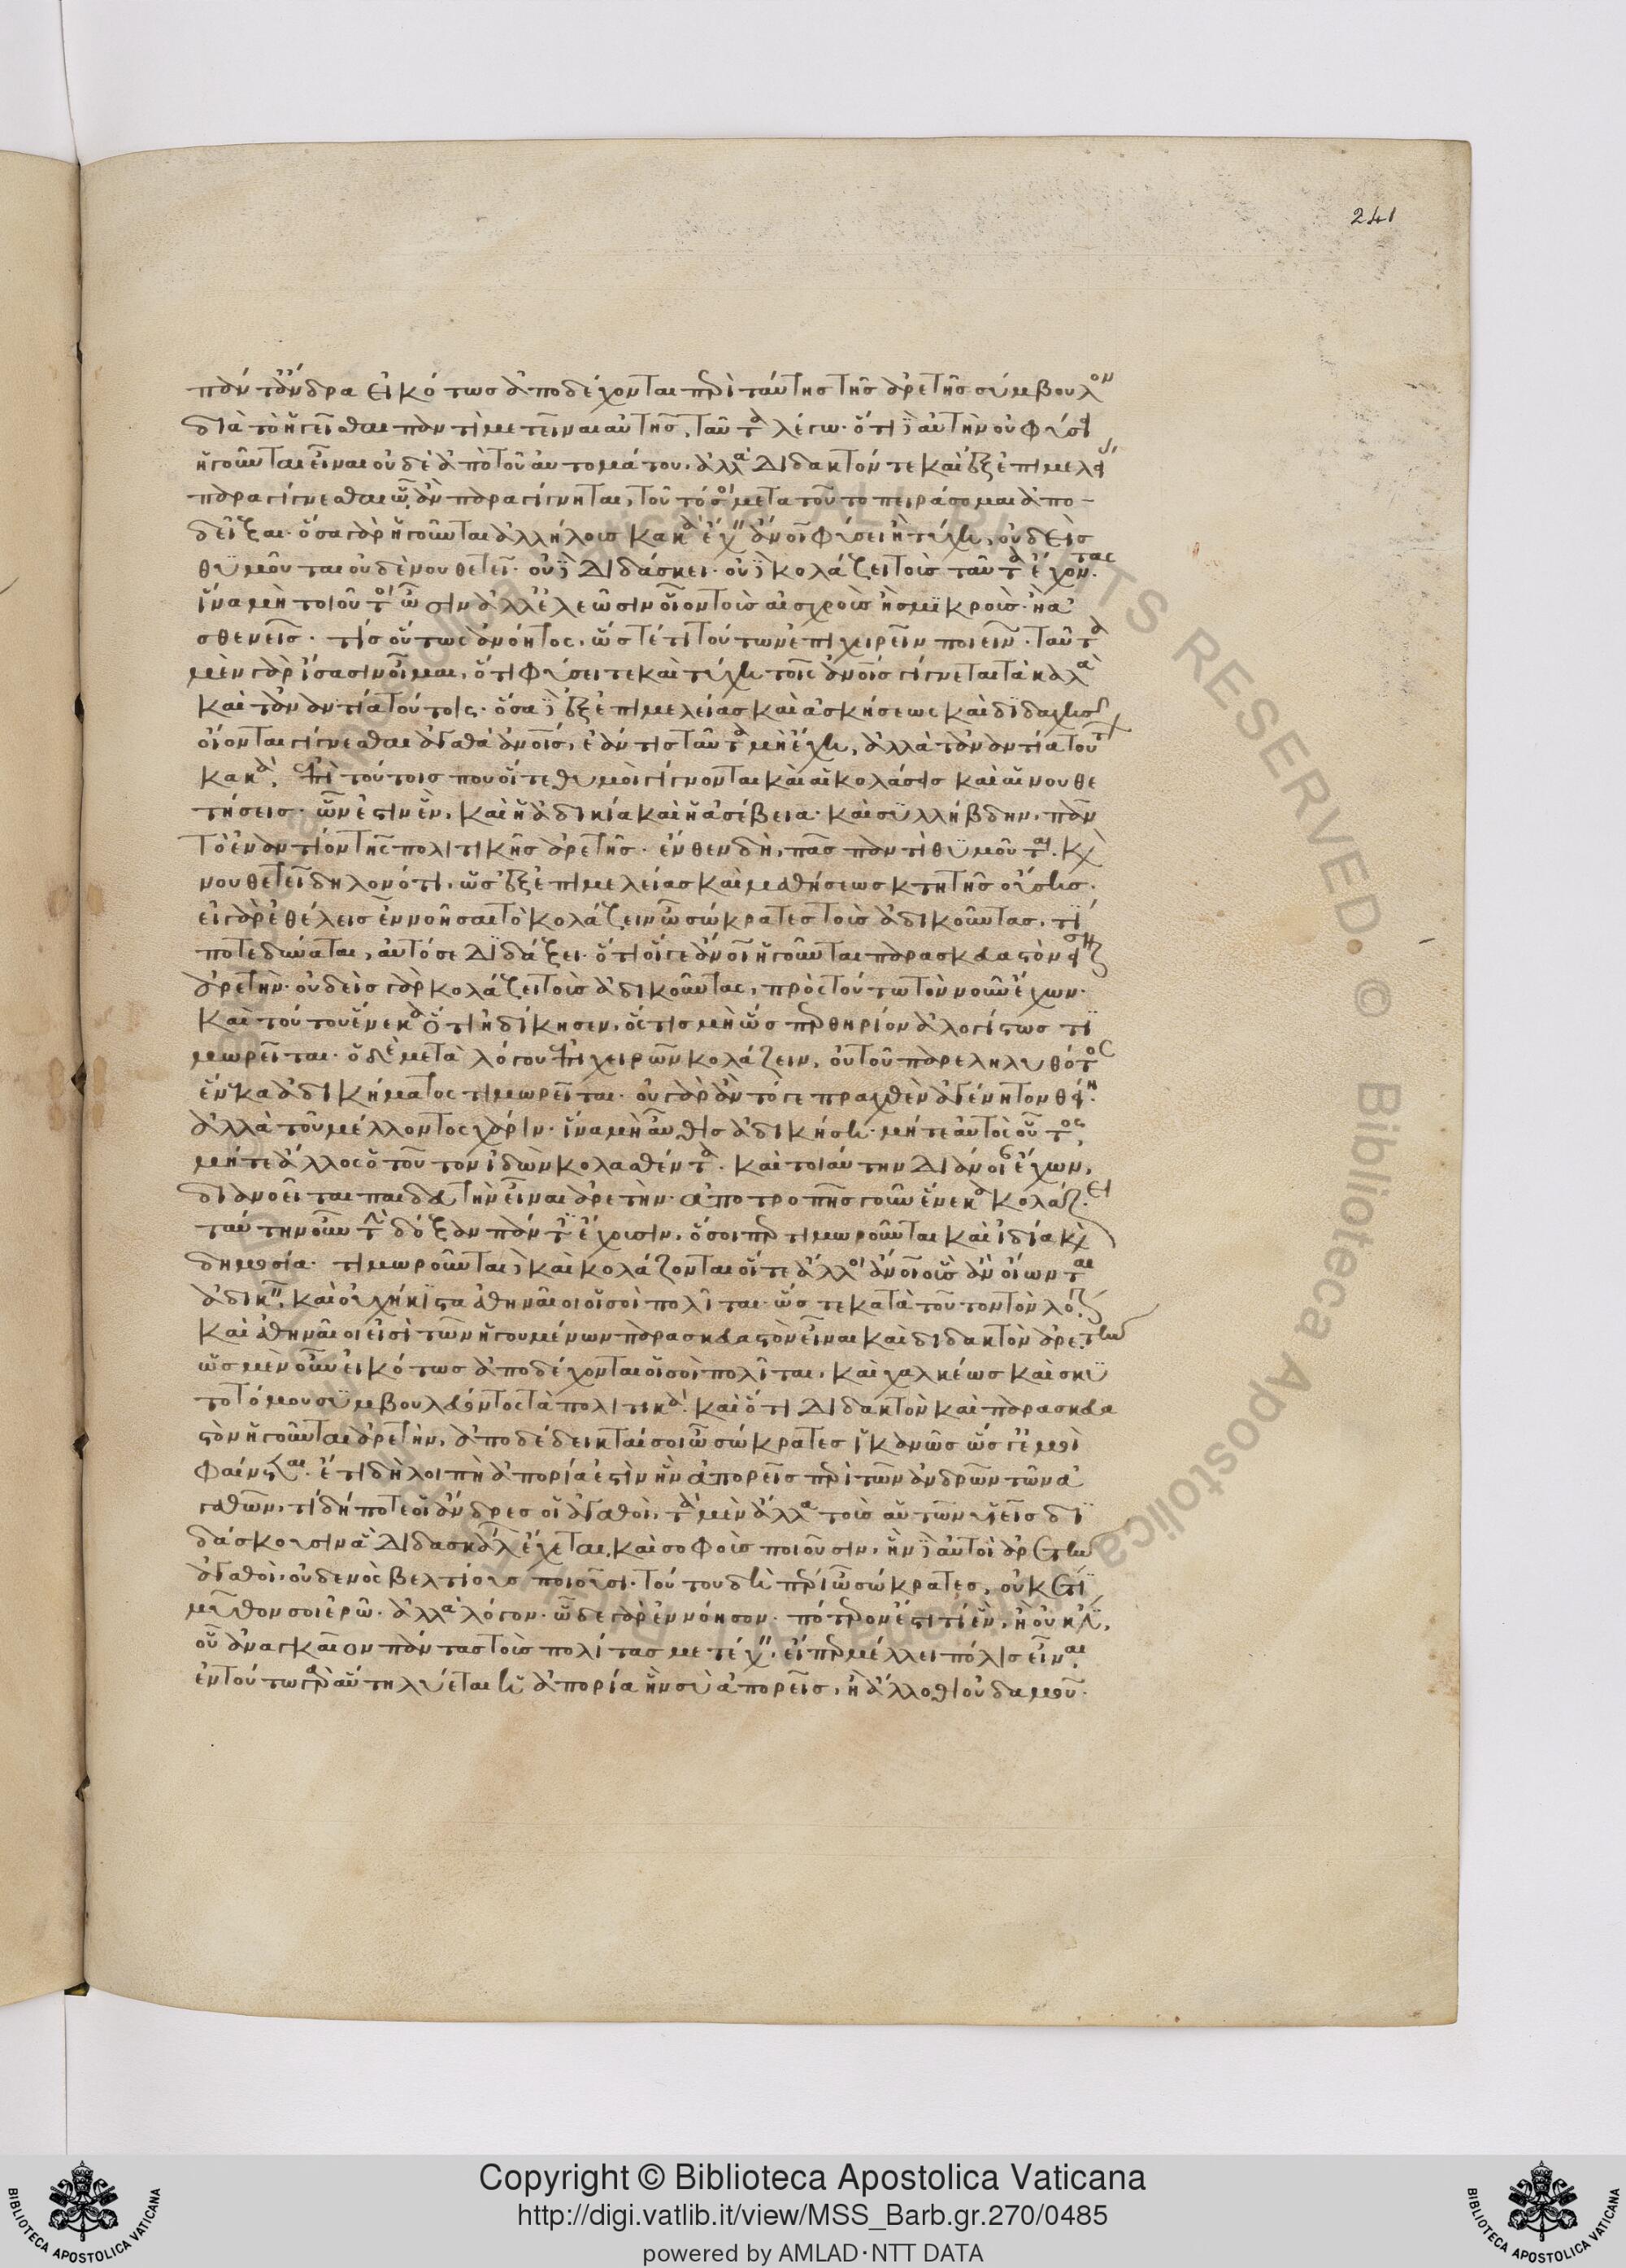 241
πάντ' ἄνδρα εἰκότως ἀποδέχονται περὶ ταύτης τῆς ἀρετῆς σύμβουλον
διὰ τὸ ἡγεῖσθαι παντὶ μετεῖναι αὐτῆς, ταῦτα λέγω· ὅτι δὲ αὐτὴν οὐ φύσει
ἡγοῦνται εἶναι οὐδὲ ἀπὸ τοῦ αὐτομάτου, ἀλλὰ διδακτόν τε καὶ ἐξ ἐπιμελείας
παραγίγνεσθαι ᾧ ἂν παραγίγνηται, τοῦτό σοι μετὰ τοῦτο πειράσομαι ἀπο-
δεῖξαι· ὅσα γὰρ ἡγοῦνται ἀλλήλοις κακὰ ἔχειν ἄνοι φύσει ἢ τύχῃ, οὐδεὶς
θυμοῦται οὐδὲ νουθετεῖ· οὐδὲ διδάσκει· οὐδὲ κολάζει τοὺς ταῦτα ἔχοντας
ἵνα μὴ τοιοῦτοι ὦσιν ἀλλ' ἐλεῶσιν οἷον τοὺς αἰσχροὺς ἢ σμικροὺς ἢ ἀ
σθενεῖς· τίς οὕτως ἀνόητος, ὥστέ τι τούτων ἐπιχειρεῖν ποιεῖν· ταῦτα
μὲν γὰρ ἴσασιν οἶμαι, ὅτι φύσει τε καὶ τύχῃ τοῖς ἀνοις γίγνεται τὰ καλὰ
καὶ τἀναντία τούτοις· ὅσα δὲ ἐξ ἐπιμελείας καὶ ἀσκήσεως καὶ διδαχῆς
οἴονται γίγνεσθαι ἀγαθὰ ἀνοις, ἐάν τις ταῦτα μὴ ἔχῃ, ἀλλὰ τἀναντία τούτων
κακά, ἐπὶ τούτοις που οἵ τε θυμοὶ γίγνονται καὶ αἱ κολάσεις καὶ αἱ νουθε
τήσεις· ὧν ἐστιν ἓν, καὶ ἡ ἀδικία καὶ ἡ ἀσέβεια· καὶ συλλήβδην, πᾶν
τὸ ἐναντίον τῆς πολιτικῆς ἀρετῆς· ἔνθεν δὴ, πᾶς παντὶ θυμοῦται καὶ
νουθετεῖ δηλονότι, ὡς ἐξ ἐπιμελείας καὶ μαθήσεως κτητῆς οὔσης·
εἰ γὰρ ἐθέλεις ἐννοῆσαι τὸ κολάζειν ὦ σώκρατες τοὺς ἀδικοῦντας, τί
ποτε δύναται, αὐτό σε διδάξει· ὅτι οἵ γε ἄνοι ἡγοῦνται παρασκευαστὸν εἶναι
ἀρετήν· οὐδεὶς γὰρ κολάζει τοὺς ἀδικοῦντας, πρὸς τούτῳ τὸν νοῦν ἔχων·
καὶ τούτου ἕνεκα ὅτι ἠδίκησεν, ὅστις μὴ ὥσπερ θηρίον ἀλογίστως τι
μωρεῖται· ὁ δὲ μετὰ λόγου ἐπιχειρῶν κολάζειν, οὐ τοῦ παρεληλυθότος
ἕνεκα ἀδικήματος τιμωρεῖται· οὐ γὰρ ἂν τό γε πραχθὲν ἀγένητον θείη·
ἀλλὰ τοῦ μέλλοντος χάριν· ἵνα μὴ αὖθις ἀδικήσῃ· μήτε αὐτὸς οὗτος,
μήτε ἄλλος ὁ τοῦτον ἰδὼν κολασθέντα· καὶ τοιαύτην διάνοιαν ἔχων,
διανοεῖται παιδευτὴν εἶναι ἀρετήν· ἀποτροπῆς γοῦν ἕνεκα κολάζει·
ταύτην οὖν τὴν δόξαν πάντες ἔχουσιν, ὅσοιπερ τιμωροῦνται καὶ ἰδίᾳ καὶ
δημοσίᾳ· τιμωροῦνται δὲ καὶ κολάζονται οἵ τε ἄλλοι ἄνοι οὓς ἂν οἴωνται
ἀδικεῖν, καὶ οὐχ ἥκιστα ἀθηναῖοι οἱ σοὶ πολῖται· ὥστε κατὰ τοῦτον τὸν λόγον
καὶ ἀθηναῖοι εἰσὶ τῶν ἡγουμένων παρασκευαστὸν εἶναι καὶ διδακτὸν ἀρετήν
ὡς μὲν οὖν εἰκότως ἀποδέχονται οἱ σοὶ πολῖται, καὶ χαλκέως καὶ σκυ
τοτόμου συμβουλεύοντος τὰ πολιτικά· καὶ ὅτι διδακτὸν καὶ παρασκευα
στὸν ἡγοῦνται ἀρετήν, ἀποδέδεικταί σοι ὦ σώκρατες ἱκανῶς ὥς γέ μοι
φαίνεται· ἔτι δὴ λοιπὴ ἀπορία ἐστὶν ἣν ἀπορεῖς περὶ τῶν ἀνδρῶν τῶν ἀ
γαθῶν, τί δή ποτε οἱ ἄνδρες οἱ ἀγαθοὶ, τὰ μὲν ἄλλα τοὺς αὑτῶν υἱεῖς δι
δάσκουσιν ἃ διδασκάλων ἔχεται, καὶ σοφοὺς ποιοῦσιν, ἣν δὲ αὐτοὶ ἀρετὴν
ἀγαθοὶ, οὐδενὸς βελτίους ποιοῦσι· τούτου δὴ πέρι ὦ σώκρατες, οὐκέτι
μῦθόν σοι ἐρῶ· ἀλλὰ λόγον· ὧδε γὰρ ἐννόησον· πότερον ἔστι τι ἓν, ἢ οὐκ ἔστιν,
οὗ ἀναγκαῖον πάντας τοὺς πολίτας μετέχειν, εἴπερ μέλλει πόλις εἶναι
ἐν τούτῳ γὰρ αὕτη λύεται ἡ ἀπορία ἣν σὺ ἀπορεῖς, ἢ ἄλλοθι οὐδαμοῦ·
Copyright © Biblioteca Apostolica Vaticana
http://digi.vatlib.it/view/MSS_Barb.gr.270/0485
powered by AMLAD·NTT DATA
BIBLIOTECA APOSTOLICA VATICANA
BIBLIOTECA APOSTOLICA VATICANA